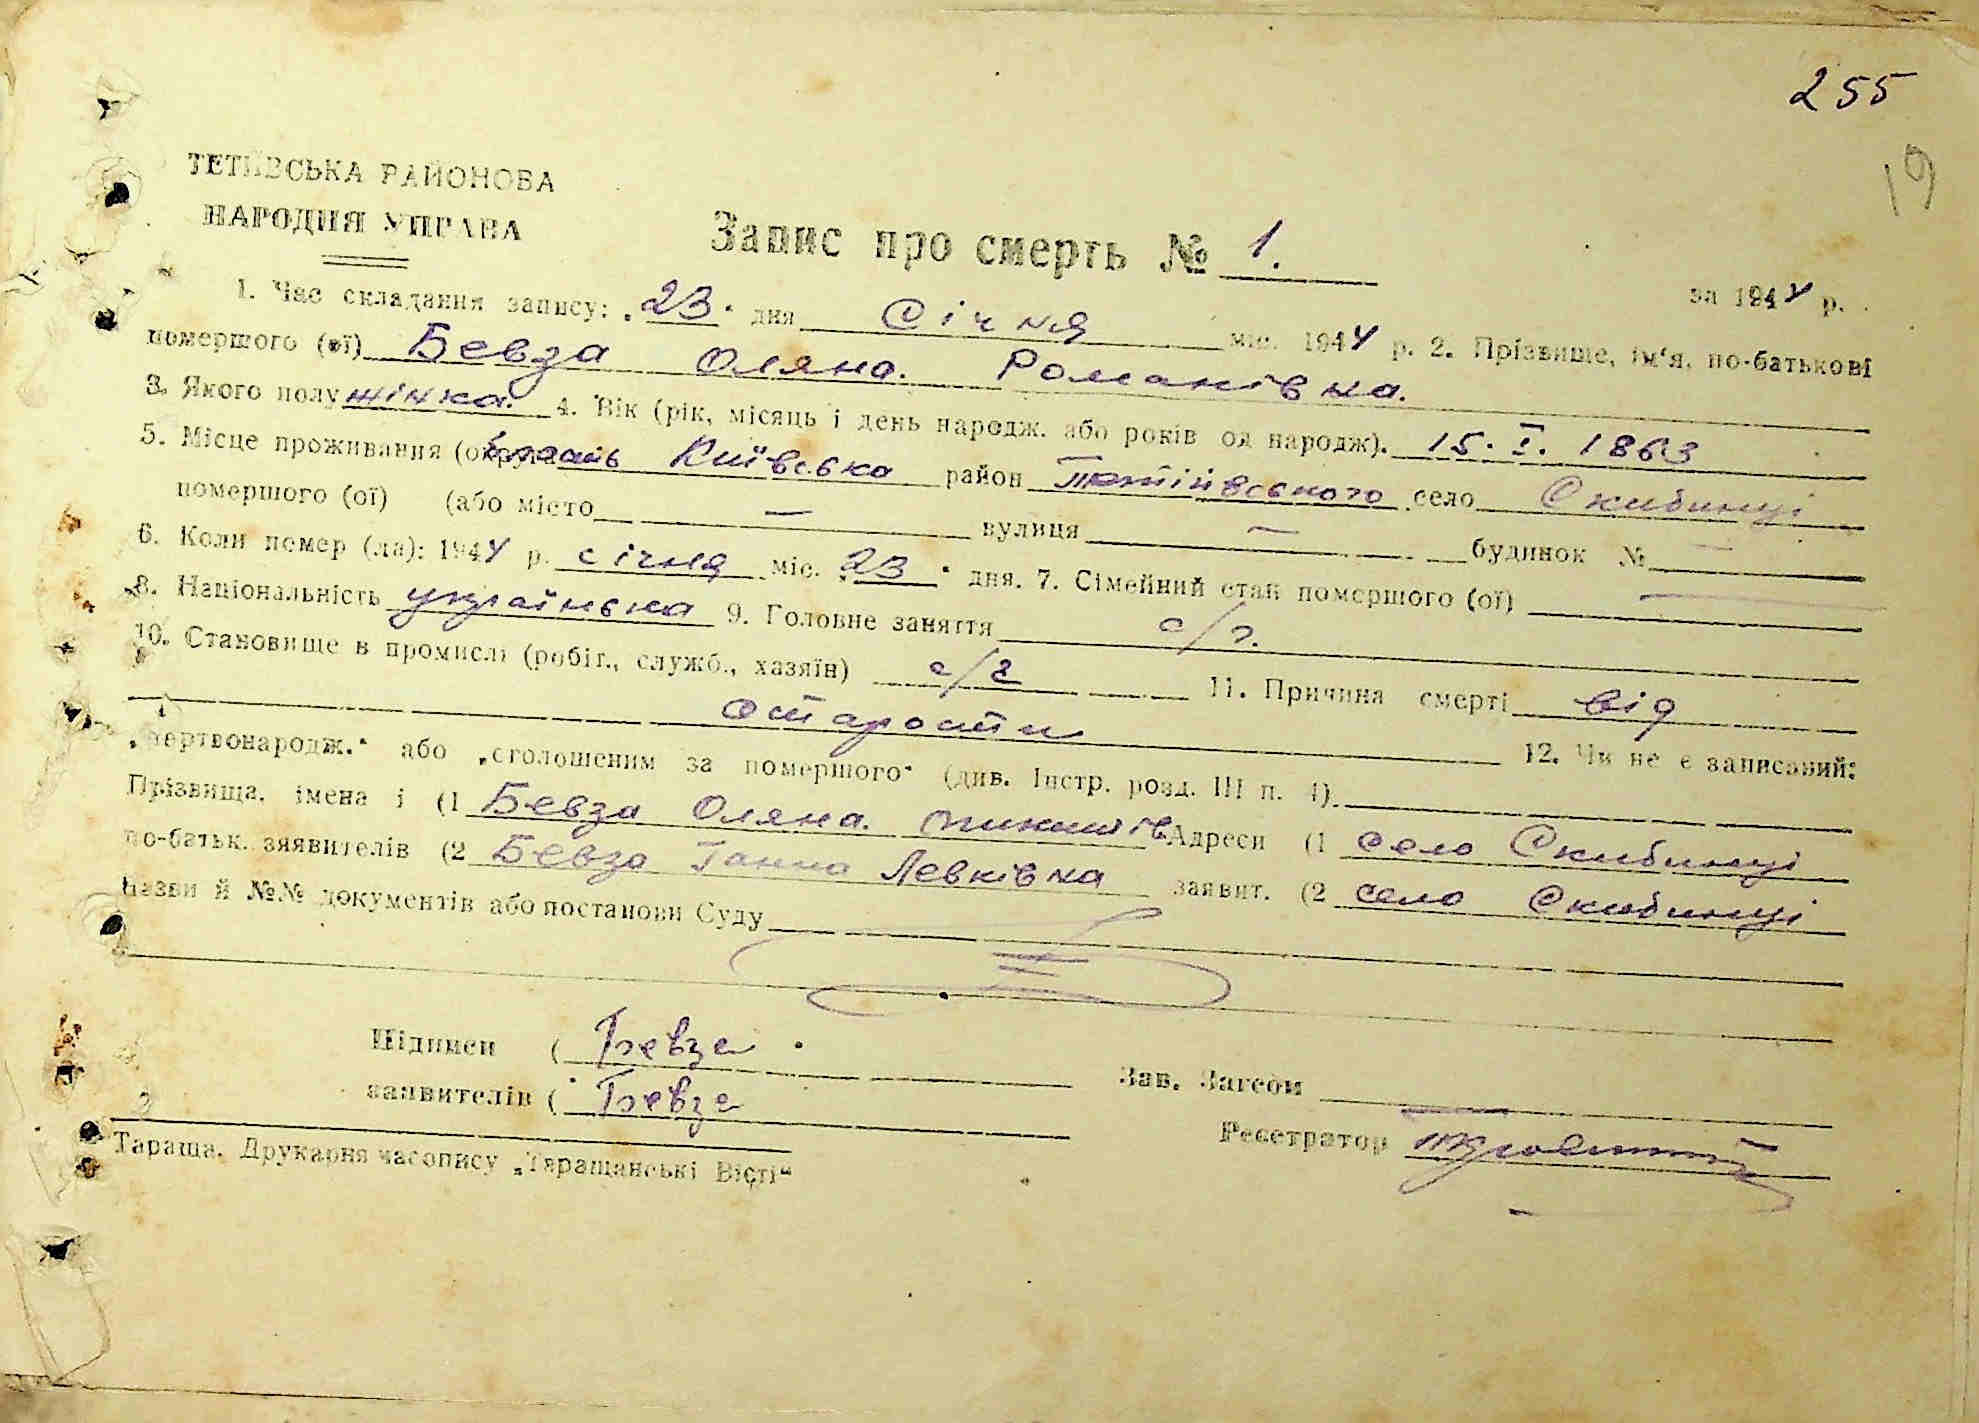 255
19
ТЕТІЇВСЬКА РАЙОНОВА
НАРОДНЯ УПРАВА
Запис про смерть № 1.
за 1944 р.
1. Час складання запису: „23“ дня Січня міс. 1944 р. 2. Прізвище, ім‘я, по-батькові
помершого (ої) Бевза Оляна. Романівка.
3. Якого полу жінка. 4. Вік (рік, місяць і день народж. або років од народж). 15. I. 1863
5. Місце проживання (округа Київська район Тетіївського село Скибинці
помершого (ої) (або місто — вулиця — будинок № —
6. Коли помер (ла): 1944 р. січня міс. „23“ дня. 7. Сімейний стан помершого (ої) —
8. Національність українька 9. Головне заняття с/г.
10. Становище в промислі (робіт., служб., хазяїн) с/г 11. Причина смерті від
старости 12. Чи не є записаний:
„мертвонародж.“ або „оголошеним за помершого“ (див. Інстр. розд. III п. 4).
Прізвища, імена і (1 Бевза Оляна. Адреси (1 село Скибинці
по-батьк. заявителів (2 Бевза Ганна Левківка заявит. (2 село Скибинці
Назви й №№ документів або постанови Суду
Підписи ( Бевза
заявителів ( Бевза
Зав. Загсом
Реєстратор
Тараща. Друкарня часопису „Таращанські Вісті“